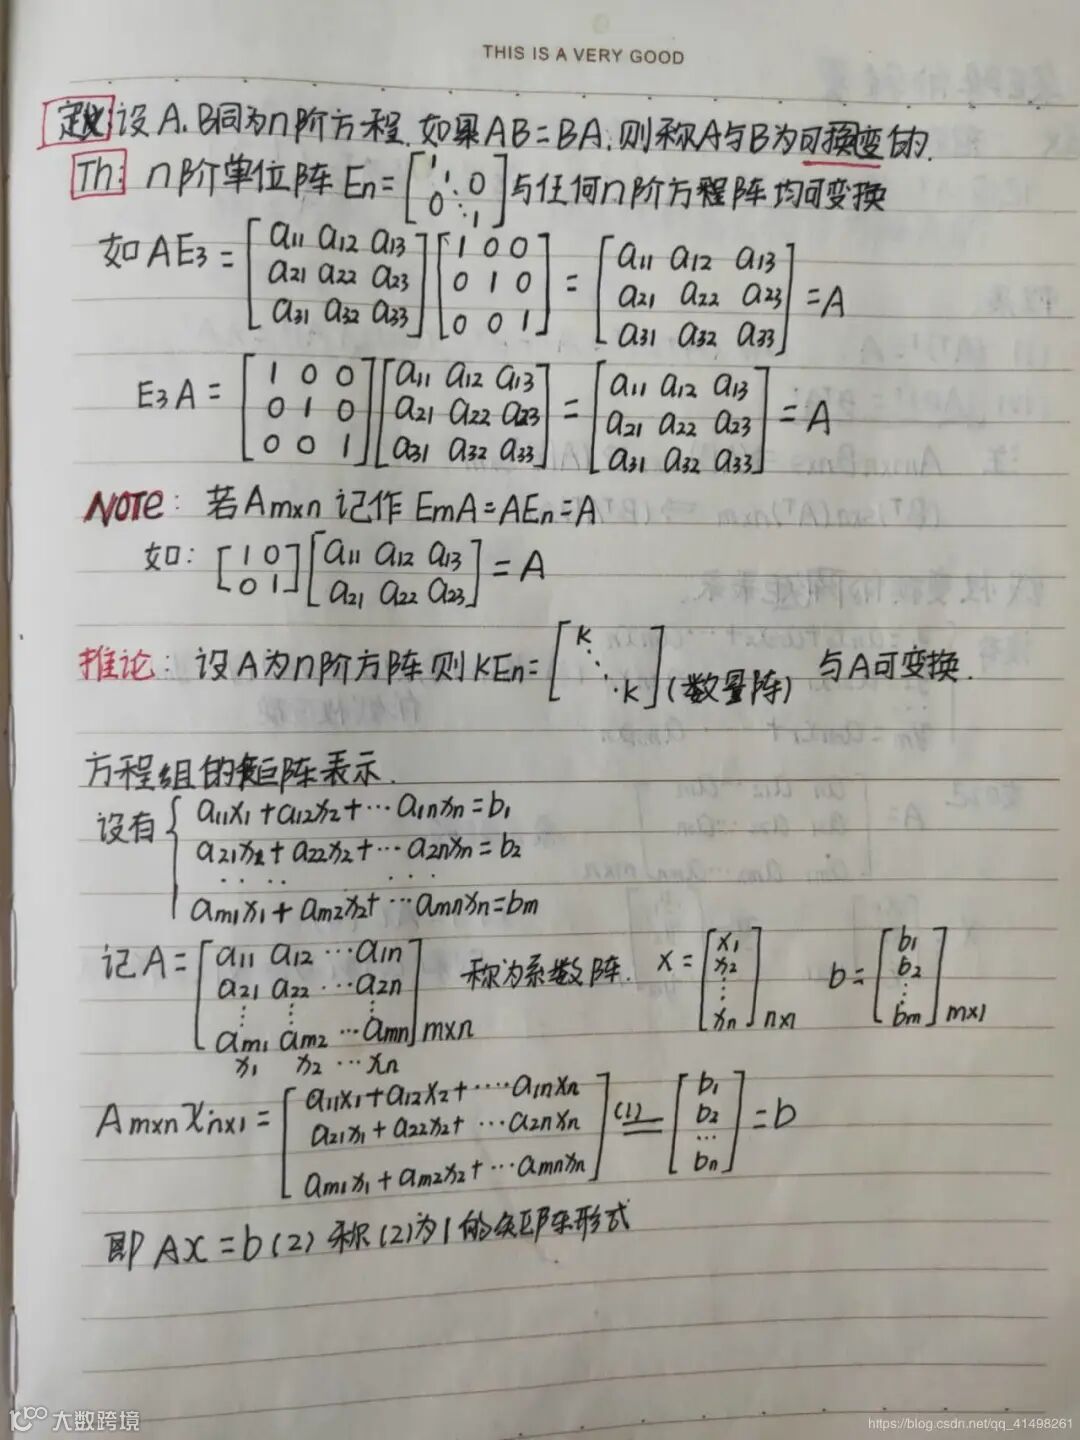 THIS IS A VERY GOOD
定义 设A、B同为n阶方程.如果AB=BA,则称A与B为可换变的.
Th: n阶单位阵En=[1 1 0 0 ⋱ 1]与任何n阶方程阵均可变换
如AE3=[a11 a12 a13 a21 a22 a23 a31 a32 a33][1 0 0 0 1 0 0 0 1]=[a11 a12 a13 a21 a22 a23 a31 a32 a33]=A
E3A=[1 0 0 0 1 0 0 0 1][a11 a12 a13 a21 a22 a23 a31 a32 a33]=[a11 a12 a13 a21 a22 a23 a31 a32 a33]=A
NOTE: 若Am×n 记作 EmA=AEn=A
如: [1 0 0 1][a11 a12 a13 a21 a22 a23]=A
推论: 设A为n阶方阵则KEn=[K ⋱ K](数量阵) 与A可变换.
方程组的矩阵表示.
设有{a11x1+a12x2+…a1nxn=b1
a21x2+a22x2+…a2nxn=b2
. . . . . . .
am1x1+am2x2+…amnxn=bm
记A=[a11 a12 …a1n a21 a22 …a2n ⋮ ⋮ ⋮ am1 am2 …amn]m×n 称为系数阵. x=[x1 x2 ⋮ xn]n×1 b=[b1 b2 ⋮ bm]m×1
x1 x2 … xn
Am×n Xn×1=[a11x1+a12x2+…a1nxn a21x1+a22x2+…a2nxn am1x1+am2x2+…amnxn] (1)= [b1 b2 … bn]=b
即AX=b(2) 称(2)为1的矩阵形式
大数跨境
https://blog.csdn.net/qq_41498261